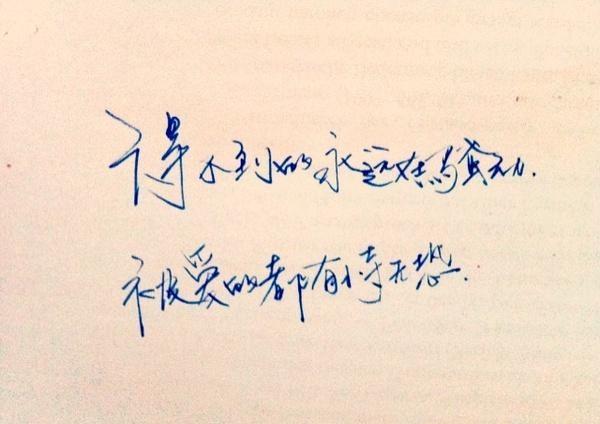 得不到的永远在骚动.
被爱的都有恃无恐.